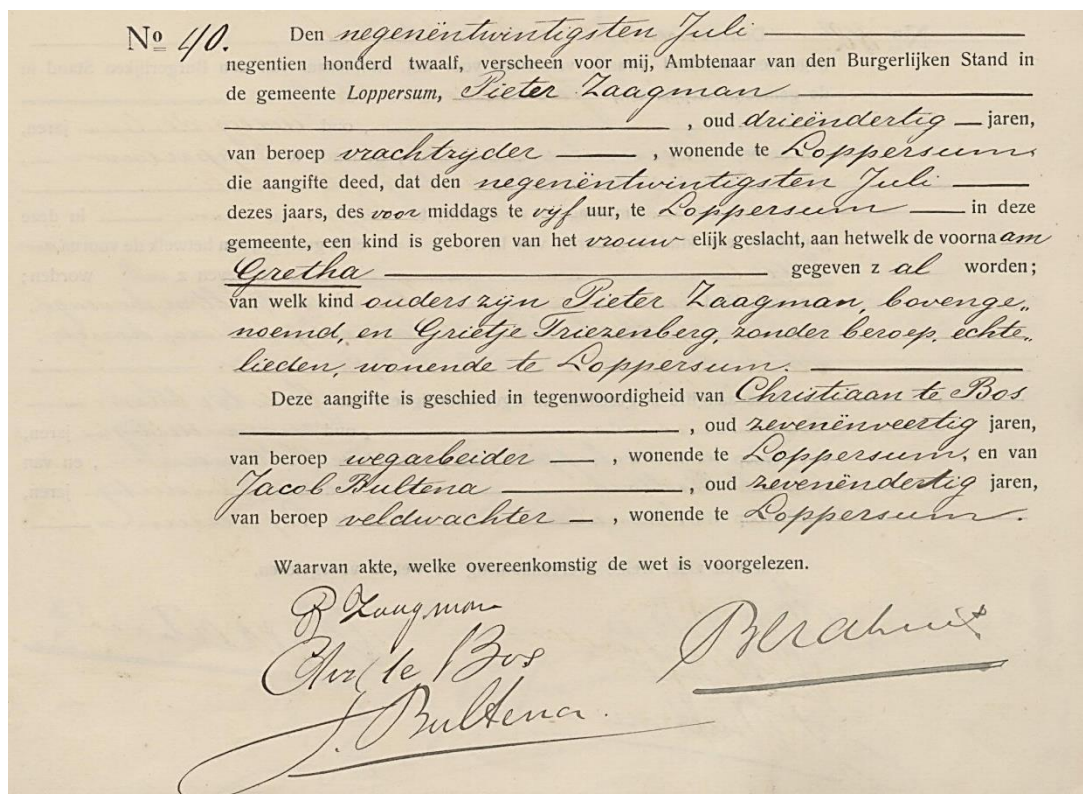 Nº 40. Den negenëntwintigsten Juli
negentien honderd twaalf, verscheen voor mij, Ambtenaar van den Burgerlijken Stand in
de gemeente Loppersum, Pieter Zaagman
, oud drieëndertig jaren,
van beroep vrachtryder , wonende te Loppersum,
die aangifte deed, dat den negenëntwintigsten Juli
dezes jaars, des voor middags te vijf uur, te Loppersum in deze
gemeente, een kind is geboren van het vrouw elijk geslacht, aan hetwelk de voorna am
Gretha gegeven z al worden;
van welk kind ouders zijn Pieter Zaagman, bovenge„
noemd, en Grietje Triezenberg, zonder beroep, echte„
lieden, wonende te Loppersum.
Deze aangifte is geschied in tegenwoordigheid van Christiaan te Bos
, oud zevenënveertig jaren,
van beroep wegarbeider , wonende te Loppersum, en van
Jacob Bultena , oud zevenëndertig jaren,
van beroep veldwachter , wonende te Loppersum.
Waarvan akte, welke overeenkomstig de wet is voorgelezen.
P Zaagman
Chr te Bos
J. Bultena.